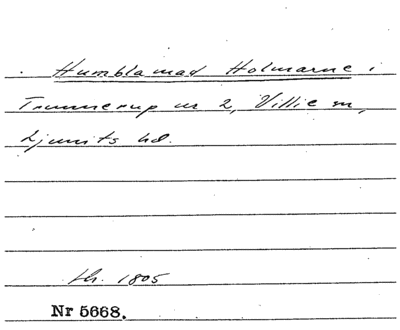 Humblamad Holmarne i
Trunnerup nr 2, Villie sn,
Ljunits hd.
th. 1805
Nr 5668.